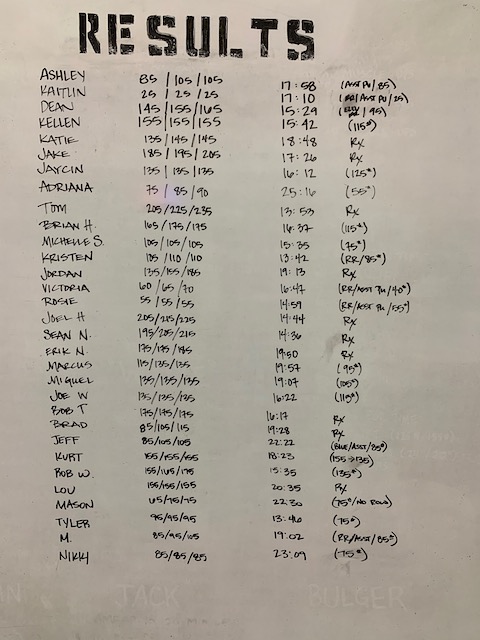 RESULTS
ASHLEY 85/105/105 17:58 (ASST PU/85)
KAITLIN 25/25/25 17:10 ASST PU/25)
DEAN 145/155/165 15:29 / 95)
KELLEN 155/155/155 15:42 (115#)
KATIE 135/145/145 18:48 Rx
JAKE 185/195/205 17:26 Rx
JAYCIN 135/135/135 16:12 (125#)
ADRIANA 75/85/90 25:16 (55#)
TOM 205/225/235 13:53 Rx
BRIAN H. 165/175/175 16:37 (115#)
MICHELLE S. 105/105/105 15:35 (75#)
KRISTEN 105/110/110 13:42 (RR/85#)
JORDAN 135/155/185 19:13 Rx
VICTORIA 60/65/70 16:47 (RR/ASST PU/40#)
ROSIE 55/55/55 14:59 (RR/ASST PU/55#)
JOEL H 205/215/225 14:44 Rx
SEAN N. 195/205/215 14:36 Rx
ERIK N. 175/175/185 19:50 Rx
MARCUS 115/135/135 19:57 (95#)
MIGUEL 135/135/135 19:07 (105#)
JOE W 135/135/135 16:22 (115#)
BOB T 175/175/175 16:17 Rx
BRAD 85/105/115 19:28 Rx
JEFF 85/105/105 22:22 (BLUE/ASST/85#)
KURT 155/155/155 18:23 (155→135)
ROB W. 155/165/175 15:35 (135#)
LOU 155/155/155 20:35 Rx
MASON 65/75/75 22:30 (75#/NO ROW)
TYLER 95/95/95 13:46 (75#)
M. 85/95/105 19:02 (RR/ASST/85#)
NIKKI 85/85/85 23:09 (75#)
JACK BULGER